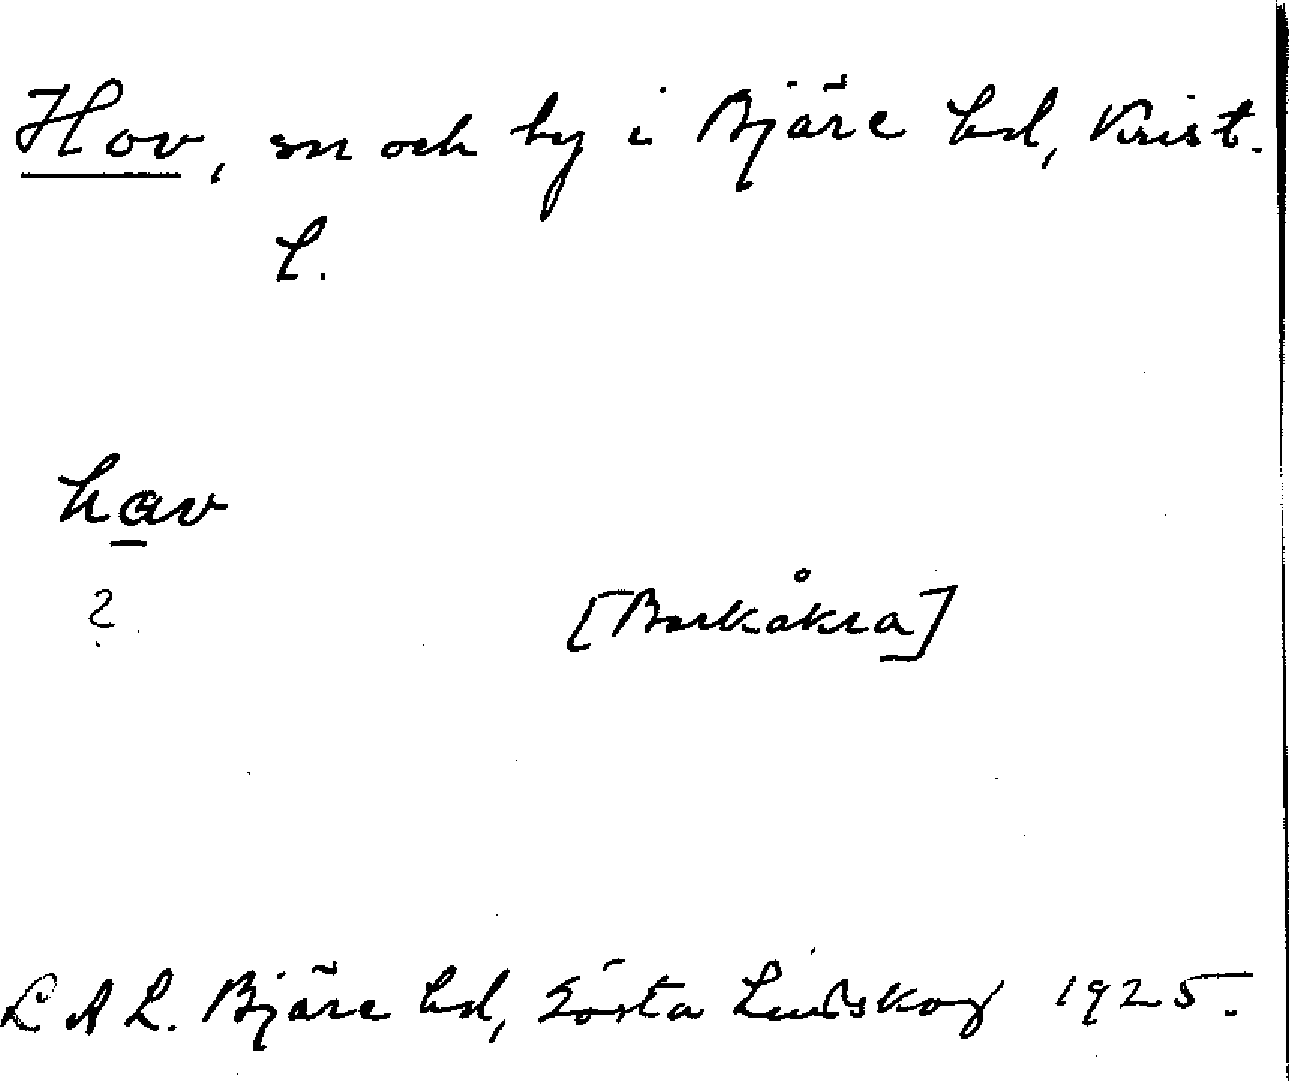 Hov, sn och by i Bjäre hd, Krist.
L.
hav
?
[Barkåkra]
LAL. Bjäre hd, Gösta Lindskog 1925.